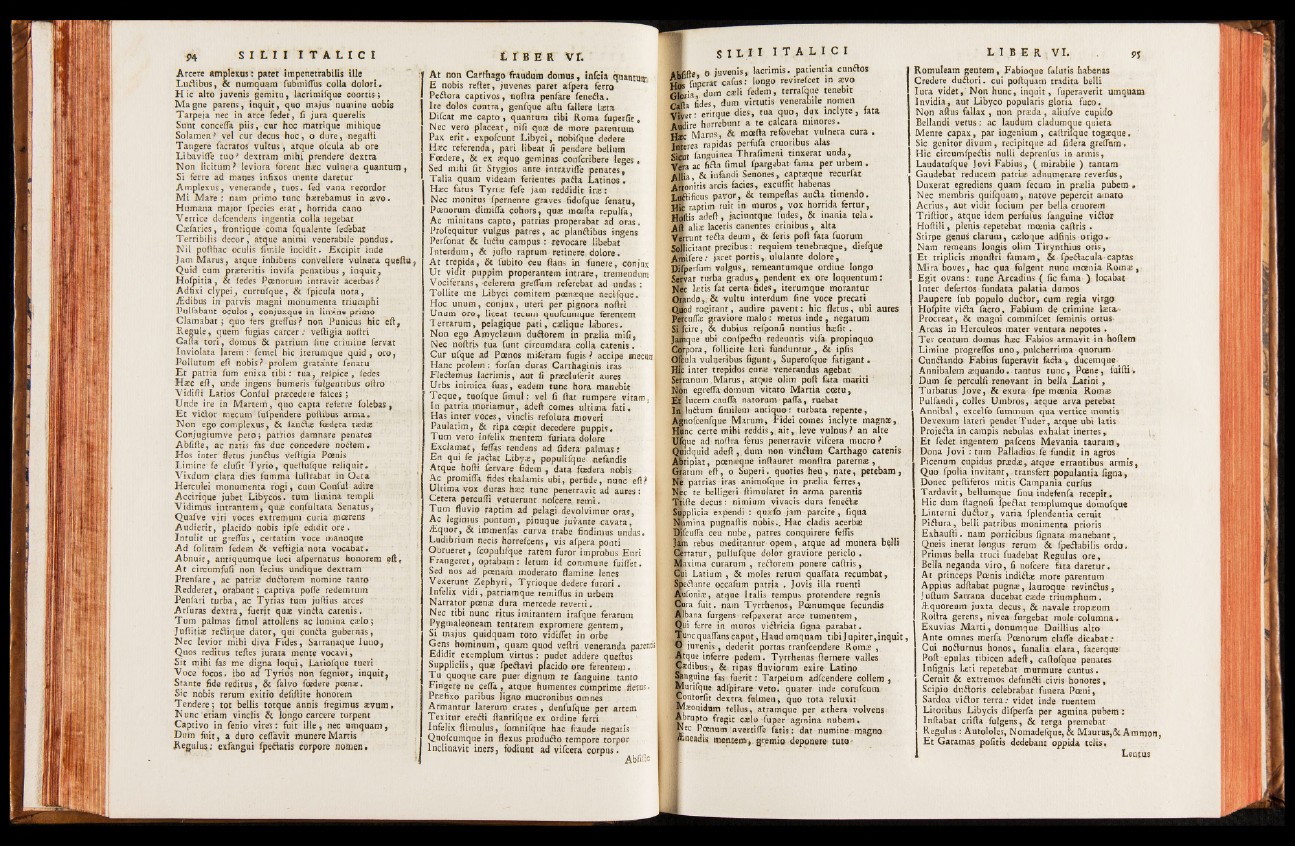 94 SILII ITALICI
Arcere amplexus: patet impenetrabilis ille
Luctibus, & numquam submissus colla dolori.
Hic alto juvenis gemitu, lacrimisque coortis;
Magne parens, inquit, quo majus numine nobis
Tarpeja nec in arce sedet, si jura querelis
Sunt concessa piis, cur hoc matrique mihique
Solamen? vel cur decus hoc, o dure, negasti
Tangere sacratos vultus, atque oscula ab ore
Libavisse tuo? dextram mihi prendere dextra
Non licitum? leviora forent hæc vulnera quantum,
Si ferre ad manes infixos mente daretur
Amplexus, venerande, tuos. sed vana recordor
Mi Mare: nam primo tunc hærebamus in ævo.
Humana major species erat, horrida cano
Vertice descendens ingentia colla tegebat
Cæsaries, frontique coma squalente sedebat
Terribilis decor, atque animi venerabile pondus.
Nil posthac oculis simile incidit. Excipit inde
Jam Marus, atque inhibens convellere vulnera questu,
Quid cum præteritis invisa penatibus, inquit,
Hospitia, & sedes Pœnorum intravit acerbas?
Adfixi clypei, currusque, & spicula nota,
Ædibus in parvis magni monumenta triumphi
Pulsabant oculos, conjuxque in limine primo
Clamabat; quo fers gressus? non Punicus hic est,
Regule, quem fugias carcer: vestigia nostri
Casta tori, domus & patrium sine crimine servat
Inviolata larem: semel hic iterumque quid, oro,
Pollutum est nobis? prolem gratante senatu
Et patria sum enixa tibi: tua, respice, sedes
Hæc est, unde ingens humeris fulgentibus ostro
Vidisti Latios Consul præcedere falces;
Unde ire in Martem, quo capta referre solebas,
Et victor mecum suspendere postibus arma.
Non ego complexus, & sanctæ fœdera tædæ
Conjugiumve peto; patrios damnare penates
Absiste, ac natis fas duc concedere noctem.
Hos inter fletus junctus vestigia Pœnis
Limine se clusit Tyrio, questusque reliquit.
Vixdum clara dies summa lustrabat in Oeta
Herculei monumenta rogi, cum Consul adire
Accirique jubet Libycos. tum limina templi
Vidimus intrantem, quæ consultata Senatus,
Quasve viri voces extremum curia mœrens
Audierit, placido nobis ipse edidit ore.
Intulit ut gressus, certatim voce manuque
Ad solitam sedem & vestigia nota vocabat.
Abnuit, antiquumque loci aspernatus honorem est,
At circumfusi non secius undique dextram
Prensare, ac patriæ ductorem nomine tanto
Redderet, orabant; captiva posse redemtum
Pensari turba, ac Tyrias tum justius arces
Arsuras dextra, fuerit quæ vincta catenis.
Tum palmas simul attollens ac lumina cælo;
Justitiæ rectique dator, qui cuncta gubernas,
Nec levior mihi diva Fides, Sarranaque Iuno,
Quos reditus testes jurata mente vocavi,
Sit mihi fas me digna loqui, Latiosque tueri
Voce focos. ibo ad Tyrios non segnior, inquit,
Stante fide reditus, & salvo fœdere pœnæ.
Sic nobis rerum exitio desistite honorem
Tendere; tot bellis torque annis fregimus ævum.
Nunc etiam vinclis & longo carcere torpent
Captivo in senio vires: fuit ille, nec umquam,
Dum fuit, a duro cessavit munere Martis
Regulus: exsangui spectatis corpore nomen.
LIBER VI.
At non Carthago fraudum domus, inscia quantum
E nobis restet, juvenes parat aspera ferro
Pectora captivos, nostra pensare senecta.
Ire dolos contra, gensque astu fallere læta
Discat me capto, quantum tibi Roma supersit.
Nec vero placeat, nisi quæ de more parentum
Pax erit. exposcunt Libyci, nobisque dedere
Hæc referenda, pari libeat si pendere bellum
Fœdere, & ex æquo geminas conscribere leges.
Sed mihi sit Stygios ante intravisse penates,
Talia quam videam ferientes pacta Latinos.
Hæc fatus Tyriæ sese jam reddidit iræ:
Nec monitus spernente graves fidosque senatu,
Pœnorum dimissa cohors, quæ mœsta repulsa,
Ac minitans capto, patrias properabat ad oras.
Prosequitur vulgus patres, ac planctibus ingens
Personat & luctu campus: revocare libebat
Interdum, & justo raptum retinere dolore.
At trepida, & subito ceu stans in funere, conjux
Ut vidit puppim properantem intrare, tremendum
Vociferans, celerem gressum referebat ad undas:
Tollite me Libyci comitem pœnæque necisque.
Hoc unum, conjux, uteri per pignora nostri
Unum oro, liceat tecum quoscumque ferentem
Terrarum, pelagique pati, cælique labores.
Non ego Amyclæum ductorem in prælia misi,
Nec nostris tua sunt circumdata colla catenis.
Cur usque ad Pœnos miseram fugis? accipe mecum
Hanc prolem: forsan duras Carthaginis iras
Flectemus lacrimis, aut si præcluserit aures
Urbs inimica suas, eadem tunc hora manebit
Teque, tuosque simul: vel si stat rumpere vitam,
In patria moriamur, adest comes ultima fati.
Has inter voces, vinclis resoluta moveri
Paulatim, & ripa cœpit decedere puppis.
Tum vero infelix mentem furiata dolore
Exclamat, fessas tendens ad sidera palmas:
En qui se jactat Libyæ, populisque nefandis
Atque hosti servare fidem, data fœdera nobis
Ac promissa fides thalamis ubi, perfide, nunc est?
Ultima vox duras hæc tunc penetravit ad aures:
Cetera percussi vetuerunt noscere remi.
Tum fluvio raptim ad pelagi devolvimur oras,
Ac legimus pontum, pinuque juvante cavata,
Æquor, & immensas curva trabe findimus undas.
Ludibrium necis horrescens, vis aspera ponti
Obrueret, scopulisque ratem furor improbus Euri
Frangeret, optabam: letum id commune fuisset.
Sed nos ad pœnam moderato flamine lenes
Vexerunt Zephyri, Tyrioque dedere furori.
Infelix vidi, patriamque remissus in urbem
Narrator pœnæ dura mercede reverti.
Nec tibi nunc ritus imitantem irasque ferarum
Pygmaleoneam tentarem expromere gentem,
Si majus quidquam toto vidisset in orbe
Gens hominum, quam quod vestri veneranda parentis
Edidit exemplum virtus: pudet addere questus
Suppliciis, quæ spectavi placido ore ferentem.
Tu quoque care puer dignum te sanguine tanto
Fingere ne cessa, atque humentes comprime fletus.
Præfixo paribus ligno mucronibus omnes
Armantur laterum crates, densusque per artem
Texitur erecti stantisque ex ordine ferri
Infelix stimulus, somnisque hac fraude negatis
Quocumque in flexus producto tempore torpor
Inclinavit iners, fodiunt ad viscera corpus.
Absiste
SILII ITALICI
Absiste, o juvenis, lacrimis. patientia cunctos
Hos superat casus: longo revirescet in ævo
Gloria, dum cæli sedem, terrasque tenebit
Casta fides, dum virtutis venerabile nomen
Vivet: eritque dies, tua quo, dux inclyte, fata
Audire horrebunt a te calcata minores.
Hæc Marus, & mœsta refovebat vulnera cura.
Interea rapidas perfusa cruoribus alas
Sicut sanguinea Thrasimeni tinxerat unda,
Vera ac ficta simul spargebat fama per urbem.
Allia, & infandi Senones, captæque recursat
Attonitis arcis facies, excussit habenas
Luctificus pavor, & tempestas aucta timendo.
Hic raptim ruit in muros, vox horrida fertur,
Hostis adest, jaciuntque sudes, & inania tela.
Ast aliæ lacetis canentes crinibus, alta
Verrunt tecta deum, & seris post fata suorum
Sollicitant precibus: requiem tenebræque, diesque
Amisere: jacet portis, ululante dolore,
Dispersum vulgus, remeantumque ordine longo
Servat turba gradus, pendent ex ore loquentum:
Nec lætis sat certa fides, iterumque morantur
Orando, & vultu interdum sine voce precati
Quod rogitant, audire pavent: hic fletus, ubi aures
Percussæ graviore malo: metus inde, negatum
Si scire, & dubius responsi nuntius hæsit.
Jamque ubi conspectu redeuntis visa propinquo
Corpora, sollicite læti funduntur, & ipsis
Oscula vulneribus figunt, Superosque fatigant.
Hic inter trepidos curæ venerandus agebat
Serranum Marus, atque olim post fata mariti
Non egressa domum vitato Martia cœtu,
Et lucem caussa natorum passa, ruebat
In luctum similem antiquo: turbata repente,
Agnoscensque Marum, Fidei comes inclyte magnæ,
Hunc certe mihi reddis, ait, leve vulnus? an alte
Usque ad nostra ferus penetravit viscera mucro?
Quidquid adest, dum non vinctum Carthago catenis
Abripiat, pœnæque instauret monstra paternæ,
Gratum est, o Superi. quoties heu, nate, petebam,
Ne patrias iras animosque in prælia ferres,
Nec te belligeri stimularet in arma parentis
Triste decus: nimium vivacis dura senectæ
Supplicia expendi: quæso jam parcite, siqua
Numina pugnastis nobis. Hac cladis acerbæ
Discussa ceu nube, patres conquirere fessis
Jam rebus meditantur opem, atque ad munera belli
Certatur, pulsusque dolor graviore periclo.
Maxima curarum, rectorem ponere castris,
Cui Latium, & moles rerum quassata recumbat,
Spectante occasum patria. Jovis illa ruenti
Ausoniæ, atque Italis tempus protendere regnis
Cura fuit. nam Tyrrhenos, Pœnumque secundis
Albana surgens respexerat arce tumentem,
Qui ferre in muros victricia signa parabat.
Tunc quassans caput, Haud umquam tibi Jupiter, inquit,
O juvenis, dederit portas transcendere Romæ,
Atque inferre pedem. Tyrrhenas sternere valles
Cædibus, & ripas fluviorum exire Latino
Sanguine fas fuerit: Tarpeium adscendere collem,
Murisque adspirare veto. quater inde coruscum
Contorsit dextra fulmen, quo tota reluxit
Mæonidum tellus, atramque per æthera volvens
Abrupto fregit cælo super agmina nubem.
Nec Pœnum avertisse satis: dat numine magno
Æneadis mentem, gremio deponere tuto
LIBER VI. 95
Romuleam gentem, Fabioque salutis habenas
Credere ductori. cui postquam tradita belli
Iura videt, Non hunc, inquit, superaverit umquam
Invidia, aut Libyco popularis gloria fuco.
Non astus fallax, non præda, aliusve cupido
Bellandi vetus: ac laudum cladumque quieta
Mente capax, par ingenium, castrisque togæque.
Sic genitor divum, recipitque ad sidera gressum.
Hic circumspectis nulli deprensus in armis,
Laudatusque Jovi Fabius, (mirabile) tantam
Gaudebat reducem patriæ adnumerare reversus,
Duxerat egrediens quam secum in prælia pubem.
Nec membris quisquam, natove pepercit amato
Acrius, aut vidit socium per bella cruorem
Tristior, atque idem perfusus sanguine victor
Hostili, plenis repetebat mœnia castris.
Stirpe genus clarum, cæloque adfinis origo.
Nam remeans longis olim Tirynthius oris,
Et triplicis monstri famam, & spectacula captas
Mira boves, hac qua fulgent nunc mœnia Romæ,
Egit ovans: tunc Arcadius (sic fama) locabat
Inter desertos fundata palatia dumos
Paupere sub populo ductor, cum regia virgo
Hospite victa sacro, Fabium de crimine læta
Procreat, & magni commiscet seminis ortus
Arcas in Herculeos mater ventura nepotes.
Ter centum domus hæc Fabios armavit in hostem
Limine progressos uno, pulcherrima quorum
Cunctando Fabius superavit facta, ducemque
Annibalem æquando. tantus tunc, Pœne, fuisti.
Dum se perculsi renovant in bella Latini,
Turbatus Jove, & exuta spe mœnia Romæ
Pulsandi, colles Umbros, atque arva petebat
Annibal, excelso summum qua vertice montis
Devexum lateri pendet Tuder, atque ubi latis
Projecta in campis nebulas exhalat inertes,
Et sedet ingentem pascens Mevania taurum,
Dona Jovi: tum Palladios se fundit in agros
Picenum cupidus prædæ, atque errantibus armis,
Quo spolia invitant, transfert populantia signa,
Donec pestiferos mitis Campania cursus
Tardavit, bellumque sinu indefensa recepit.
Hic dum stagnosi spectat templumque domosque
Linterni ductor, varia splendentia cernit
Pictura, belli patribus monimenta prioris
Exhausti. nam porticibus signata manebant,
Queis inerat longus rerum & spectabilis ordo.
Primus bella truci suadebat Regulus ore,
Bella neganda viro, si noscere fata daretur.
At princeps Pœnis indictæ more parentum
Appius adstabat pugnæ, lauroque revinctus,
Justum Sarrana ducebat cæde triumphum.
Æquoreum juxta decus, & navale tropæum
Rostra gerens, nivea surgebat mole columna.
Exuvias Marti, donumque Duillius alto
Ante omnes mersa Pœnorum classe dicabat:
Cui nocturnus honos, funalia clara, sacerque
Post epulas tibicen adest, castosque penates
Insignis læti repetebat murmure cantus.
Cernit & extremos defuncti civis honores,
Scipio ductoris celebrabat funera Pœni,
Sardoa victor terra: videt inde ruentem
Litoribus Libycis dispersa per agmina pubem:
Instabat crista fulgens, & terga premebat
Regulus: Autololes, Nomadesque, & Maurus, & Ammon,
Et Garamas positis dedebant oppida telis.
Lentus